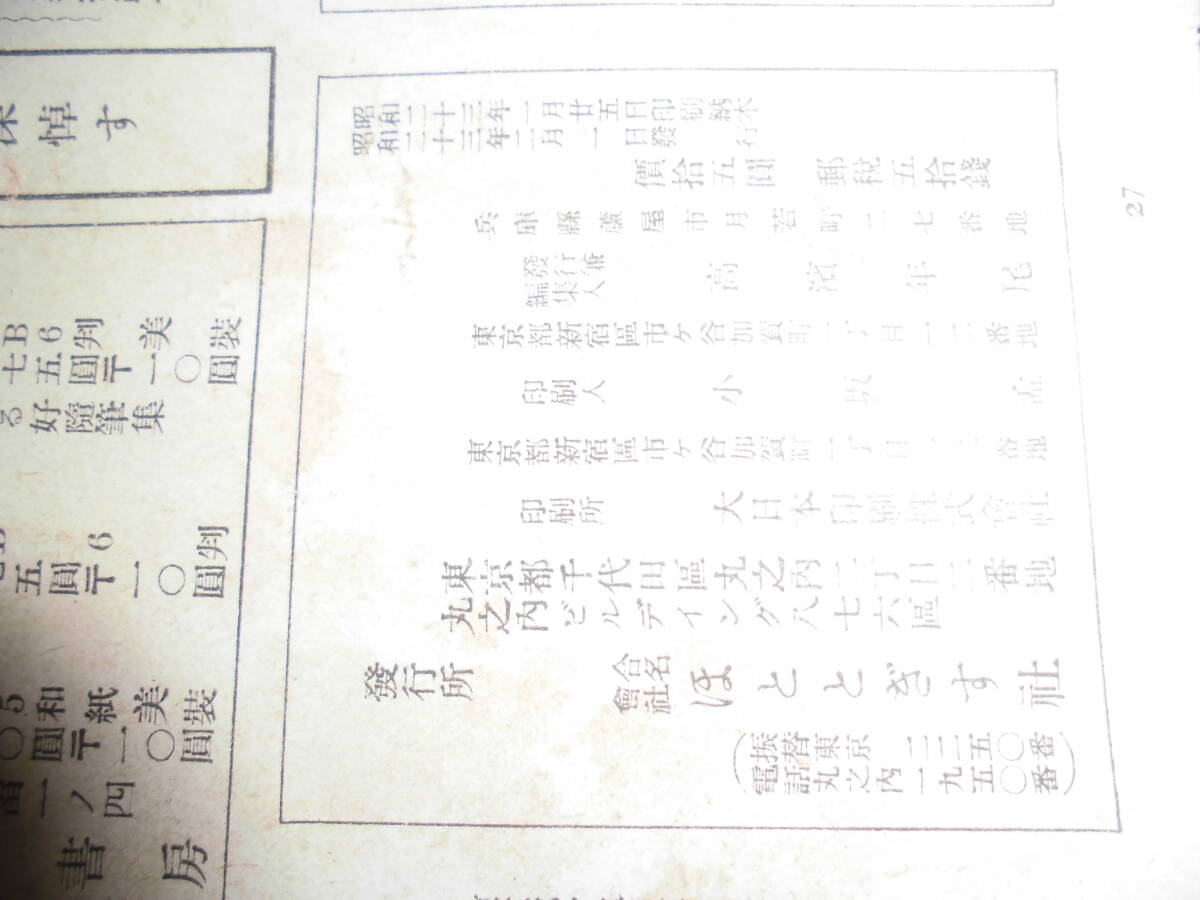 悼す
B6判美裝
七五圓〒一〇圓
る好隨筆集
6判
五圓〒一〇圓
5和紙美裝
〇圓〒一〇圓
一ノ四
書房
昭和二十三年一月廿五日印刷納本
昭和二十三年二月一日發行
價拾五圓 郵税五拾錢
兵庫縣蘆屋市月若町二七番地
發行兼編集人 高濱年尾
東京都新宿區市ヶ谷加賀町一丁目一二番地
印刷人 小坂孟
東京都新宿區市ヶ谷加賀町一丁目一二番地
印刷所 大日本印刷株式會社
東京都千代田區丸之內二丁目二番地
丸之內ビルデイング八七六區
發行所 合名會社 ほととぎす社
(振替東京一二二五〇番
電話丸之內一九五〇番)
27